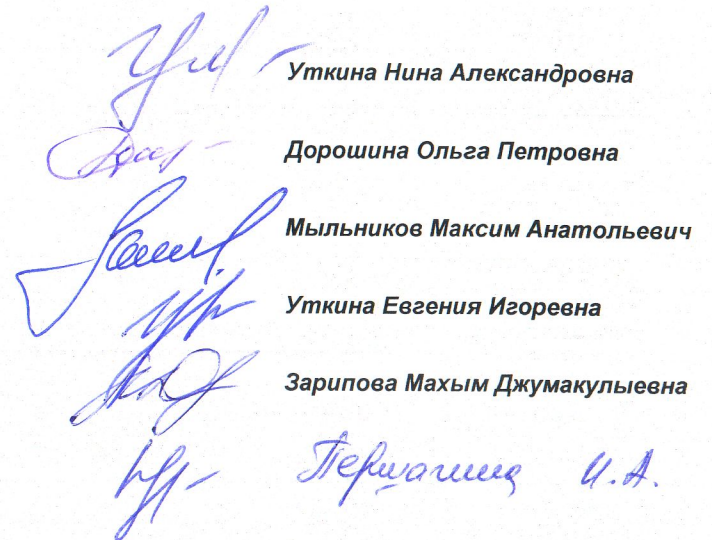 Уткина Нина Александровна
Дорошина Ольга Петровна
Мыльников Максим Анатольевич
Уткина Евгения Игоревна
Зарипова Махым Джумакулыевна
Першагина И.А.